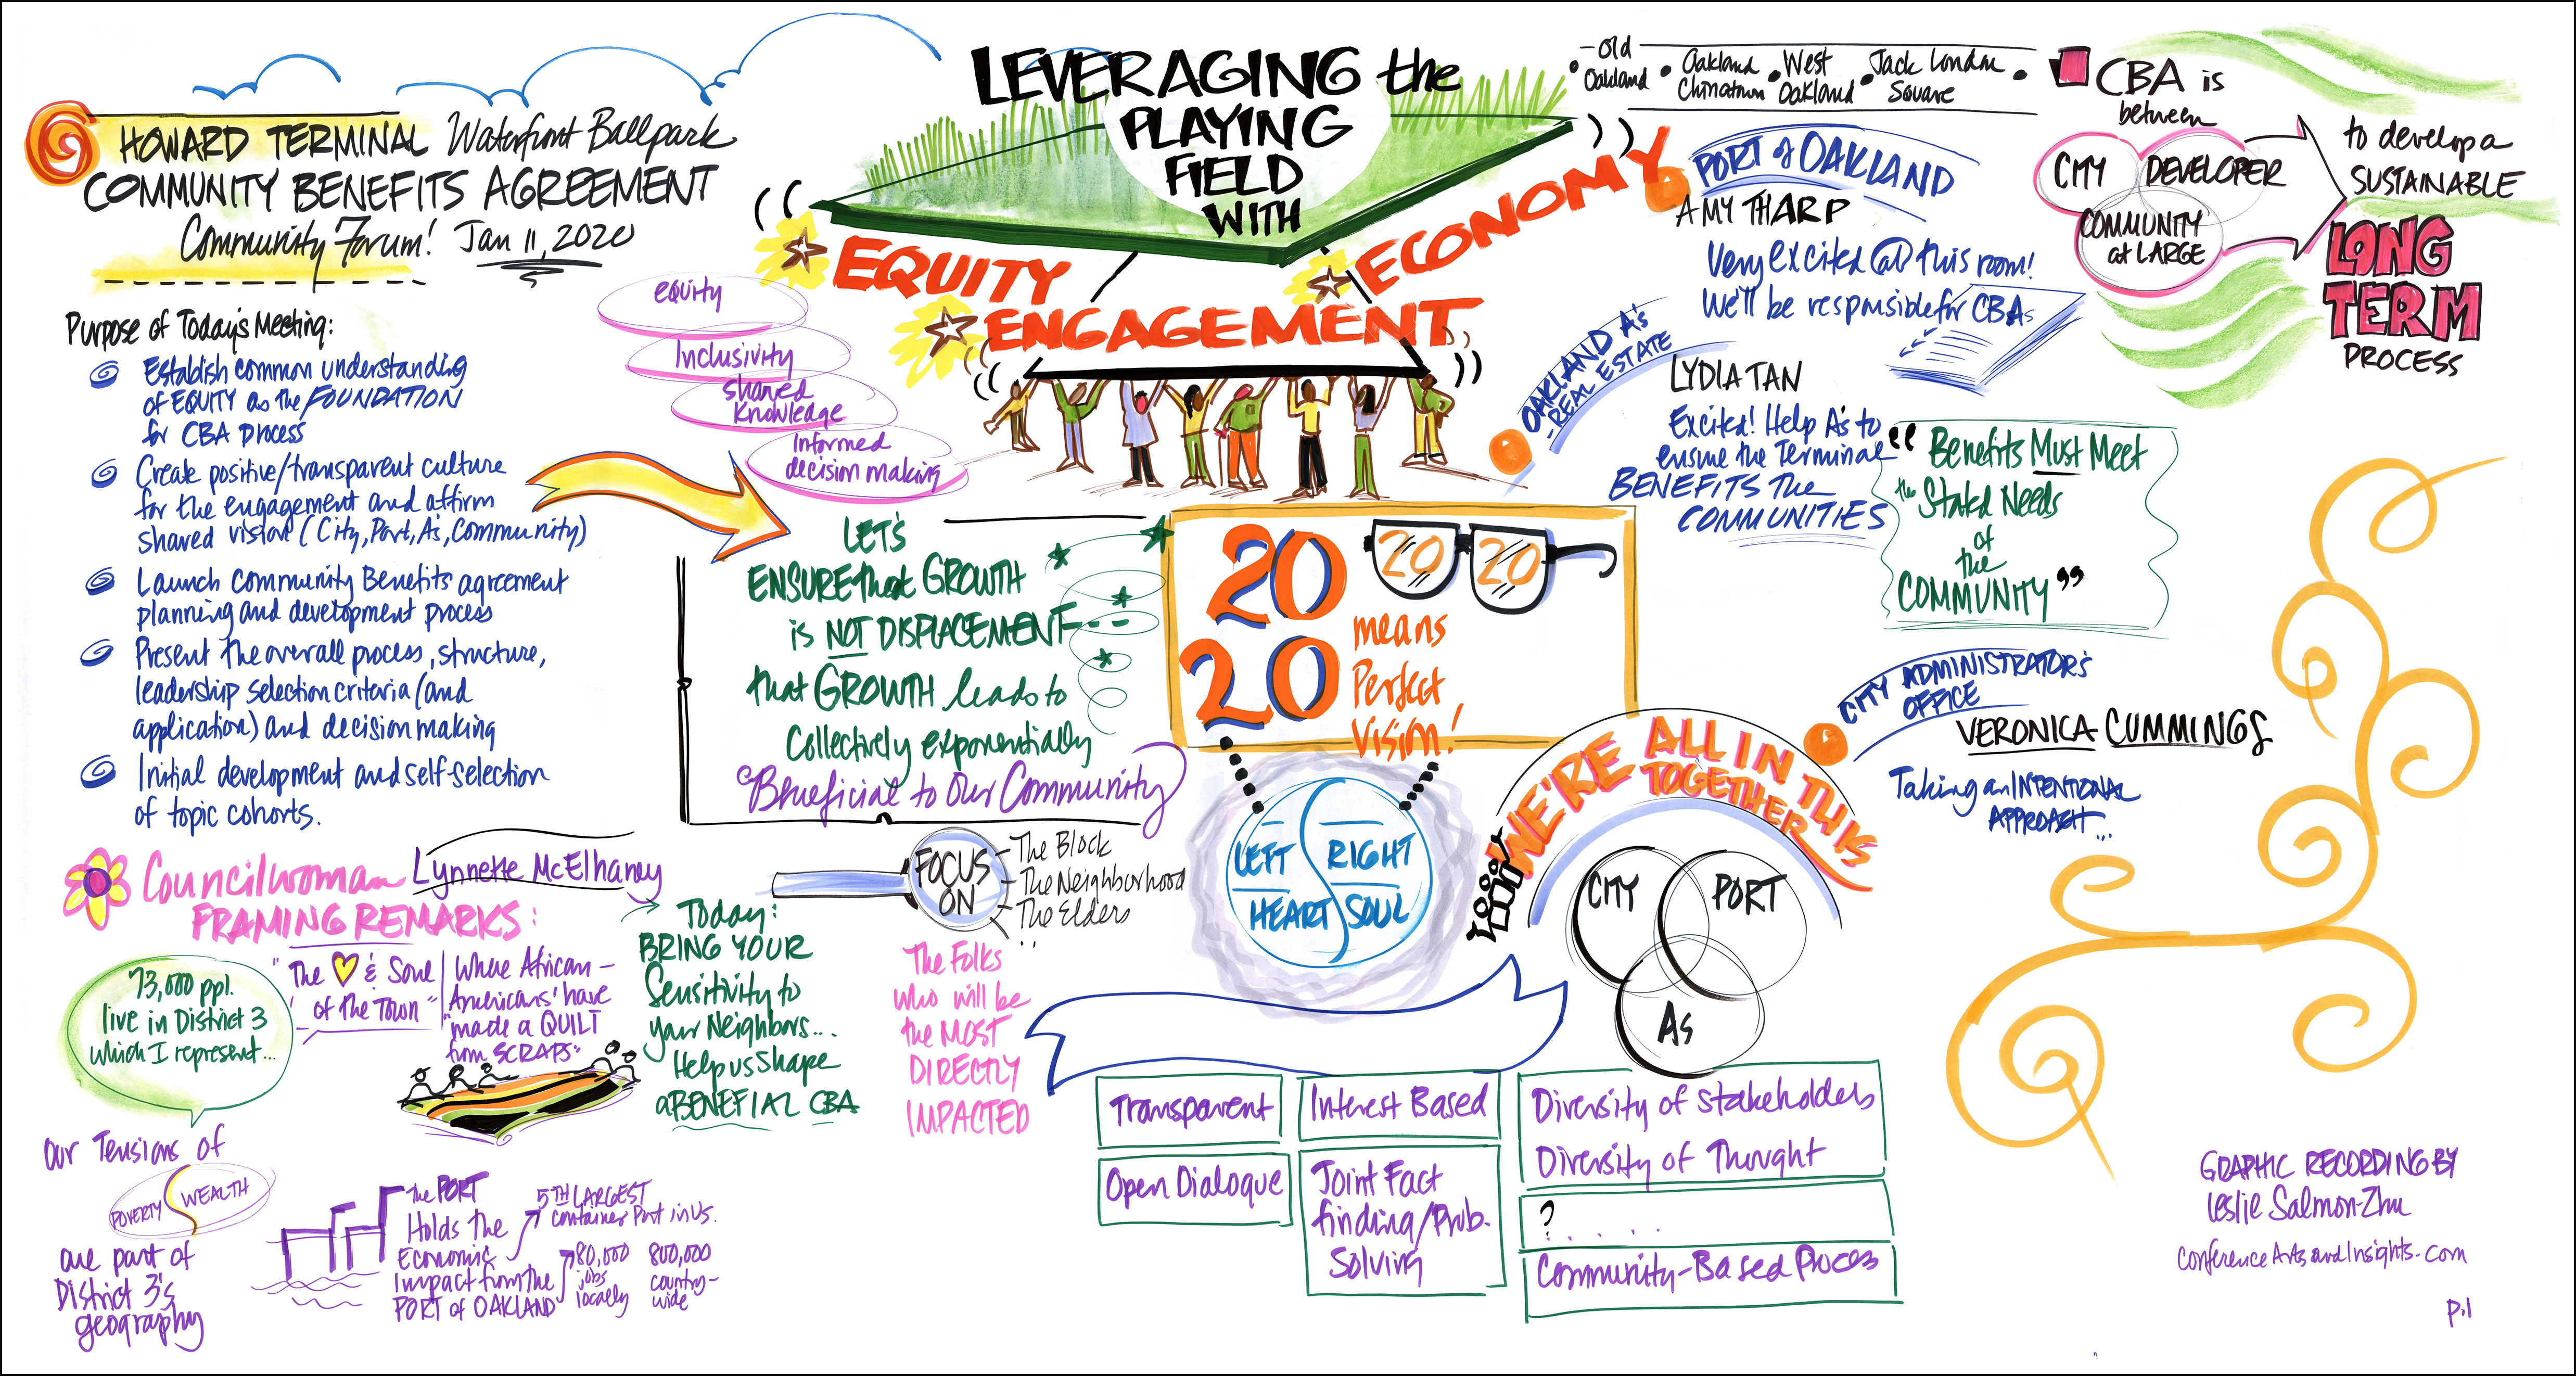 HOWARD TERMINAL Waterfront Ballpark
COMMUNITY BENEFITS AGREEMENT
Community Forum! Jan 11, 2020
Purpose of Today's Meeting:
Establish common understanding
of EQUITY as the FOUNDATION
for CBA process
Create positive/transparent culture
for the engagement and affirm
shared vision (City, Port, As, Community)
Launch Community Benefits agreement
planning and development process
Present the overall process, structure,
leadership selection criteria (and
application) and decision making
Initial development and self-selection
of topic cohorts.
LEVERAGING the
PLAYING
FIELD
WITH
EQUITY
ECONOMY
ENGAGEMENT
equity
Inclusivity
shared
knowledge
Informed
decision making
- Old
Oakland
Oakland
Chinatown
West
Oakland
Jack London
Square
PORT of OAKLAND
AMY THARP
Very excited @ this room!
We'll be responsible for CBAs
CBA is
between
CITY
DEVELOPER
COMMUNITY
at LARGE
to develop a
SUSTAINABLE
LONG
TERM
PROCESS
OAKLAND A's
- REAL ESTATE
LYDIA TAN
Excited! Help A's to
ensure the Terminal
BENEFITS the
COMMUNITIES
"Benefits Must Meet
the Stakd Needs
of
the
COMMUNITY"
LET'S
ENSURE that GROWTH
is NOT DISPLACEMENT---
that GROWTH leads to
Collectively exponentially
Beneficial to Our Community
20
20
20 20
means
Perfect
Vision!
LEFT
RIGHT
HEART
SOUL
WE'RE ALL IN THIS
TOGETHER
CITY
PORT
As
CITY ADMINISTRATOR'S
OFFICE
VERONICA CUMMINGS
Taking an INTENTIONAL
APPROACH...
Councilwoman Lynnette McElhaney
FRAMING REMARKS:
73,000 ppl.
live in District 3
which I represent...
"The & Soul
of the Town"
Where African-
Americans' have
"made a QUILT
from SCRAPS"
Today:
BRING YOUR
Sensitivity to
your Neighbors...
Help us shape
a BENEFIAL CBA
FOCUS
ON
- The Block
- The Neighborhood
- The Elders
The Folks
who will be
the MOST
DIRECTLY
IMPACTED
Our Tensions of
POVERTY
WEALTH
are part of
District 3's
geography
The PORT
Holds the
Economic
Impact from the
PORT of OAKLAND
5TH LARGEST
Container Port in US.
80,000
jobs
locally
800,000
country-
wide
Transparent
Interest Based
Open Dialogue
Joint Fact
finding/Prob.
Solving
Diversity of Stakeholders
Diversity of Thought
? . . . . .
Community-Based Proces
GRAPHIC RECORDING BY
Leslie Salmon-Zhu
ConferenceArtsandInsights.com
p.1